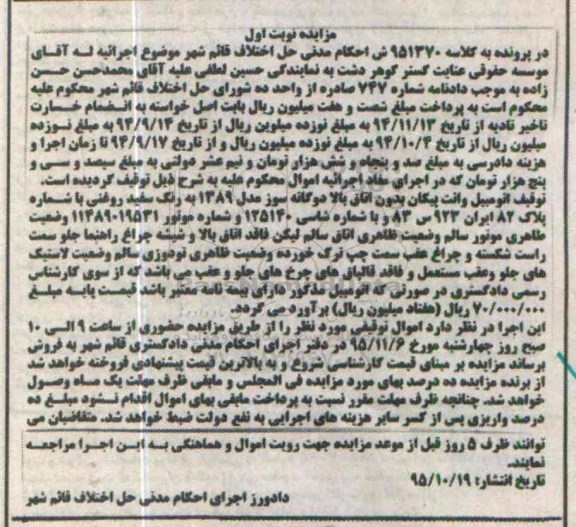 مزایده نوبت اول
در پرونده به کلاسه ۹۵۱۳۷۰ ش احکام مدنی حل اختلاف قائم شهر موضوع اجرائیه لـه آقـای
موسسه حقوقی عنایت گستر گوهر دشت به نمایندگی حسین لطفی علیه آقای محمدحسن حسن
زاده به موجب دادنامه شماره ۷۴۷ صادره از واحد ده شورای حل اختلاف قائم شهر محکوم علیه
محکوم است به پرداخت مبلغ شصت و هفت میلیون ریال بابت اصل خواسته به انضمام خسارت
تاخیر تادیه از تاریخ ۹۴/۱۱/۱۳ به مبلغ نوزده میلوین ریال از تاریخ ۹۴/۹/۱۳ به مبلغ نـوزده
میلیون ریال از تاریخ ۹۴/۱۰/۴ به مبلغ نوزده میلیون ریال و از تاریخ ۹۴/۹/۱۷ تا زمان اجرا و
هزینه دادرسی به مبلغ صد و پنجاه و شش هزار تومان و نیم عشر دولتی به مبلغ سیصد و سـی و
پنج هزار تومان که در اجرای مفاد اجرائیه اموال محکوم علیه به شرح ذیل توقیف گردیده است.
توقیف اتومبیل وانت پیکان بدون اتاق بالا دوگانه سوز مدل ۱۳۸۹ به رنگ سفید روغنی با شماره
پلاک ۸۲ ایران ۹۲۳ س ۸۳ و با شماره شاسی ۱۲۵۱۴۰ و شماره موتور ۱۱۴۸۹۰۱۹۵۳۱ وضعیت
ظاهری موتور سالم وضعیت ظاهری اتاق سالم لیکن فاقد اتاق بالا و شیشه چراغ راهنما جلو سمت
راست شکسته و چراغ عقب سمت چپ ترک خورده وضعیت ظاهری تودوزی سالم وضعیت لاستیک
های جلو وعقب مستعمل و فاقد قالپاق های چرخ های جلو و عقب می باشد که از سوی کارشناس
رسمی دادگستری در صورتی که اتومبیل مذکور دارای بیمه نامه معتبر باشد قیمـت پایـه مبلـغ
۷۰/۰۰۰/۰۰۰ ریال (هفتاد میلیون ریال) برآورد می گردد.
این اجرا در نظر دارد اموال توقیفی مورد نظر را از طریق مزایده حضوری از ساعت ۹ الـی ۱۰
صبح روز چهارشنبه مورخ ۹۵/۱۱/۶ در دفتر اجرای احکام مدنی دادگستری قائم شهر به فروش
برساند مزایده بر مبنای قیمت کارشناسی شروع و به بالاترین قیمت پیشنهادی فروخته خواهد شد
از برنده مزایده ده درصد بهای مورد مزایده فی المجلس و مابقی ظرف مهلت یک مـاه وصـول
خواهد شد. چنانچه ظرف مهلت مقرر نسبت به پرداخت مابقی بهای اموال اقدام نـشود مبلـغ ده
درصد واریزی پس از کسر سایر هزینه های اجرایی به نفع دولت ضبط خواهد شد. متقاضیان می
توانند ظرف ۵ روز قبل از موعد مزایده جهت رویت اموال و هماهنگی بـه ایـن اجـرا مراجعـه
نمایند.
تاریخ انتشار: ۹۵/۱۰/۱۹
دادورز اجرای احکام مدنی حل اختلاف قائم شهر